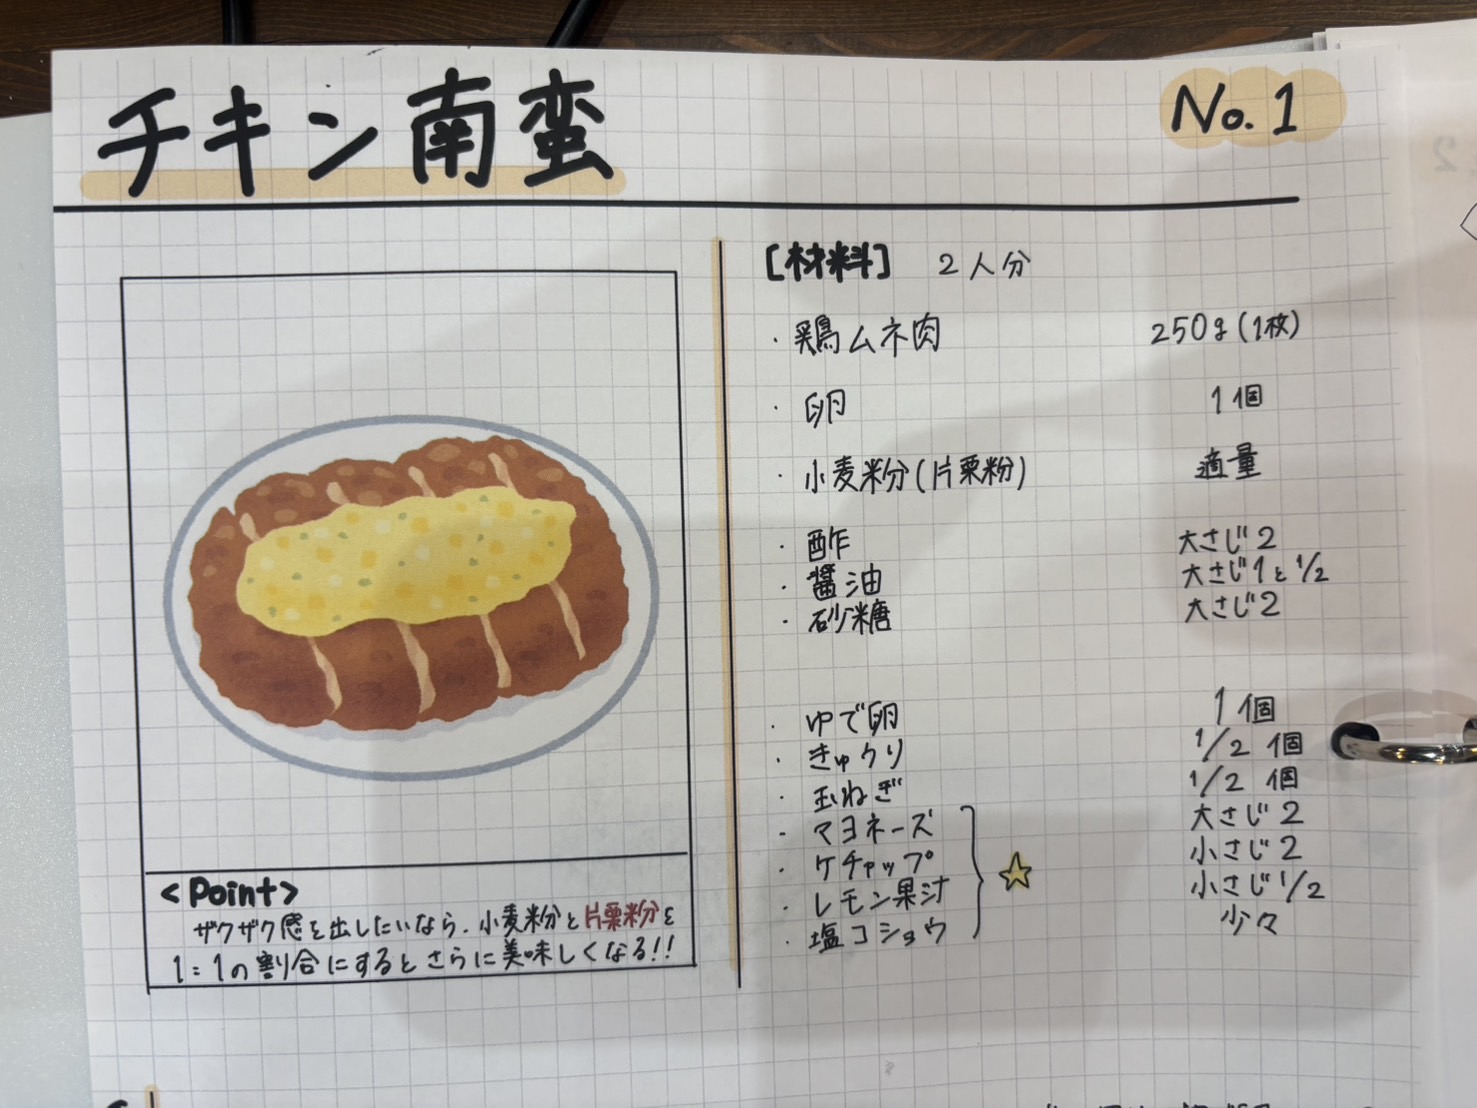 チキン南蛮
No.1
[材料] 2人分
・鶏ムネ肉 250g(1枚)
・卵 1個
・小麦粉(片栗粉) 適量
・酢 大さじ2
・醤油 大さじ1と1/2
・砂糖 大さじ2
・ゆで卵 1個
・きゅうり 1/2個
・玉ねぎ 1/2個
・マヨネーズ 大さじ2
・ケチャップ 小さじ2
・レモン果汁 小さじ1/2
・塩コショウ 少々
<Point>
ザクザク感を出したいなら、小麦粉と片栗粉を
1:1の割合にするとさらに美味しくなる!!